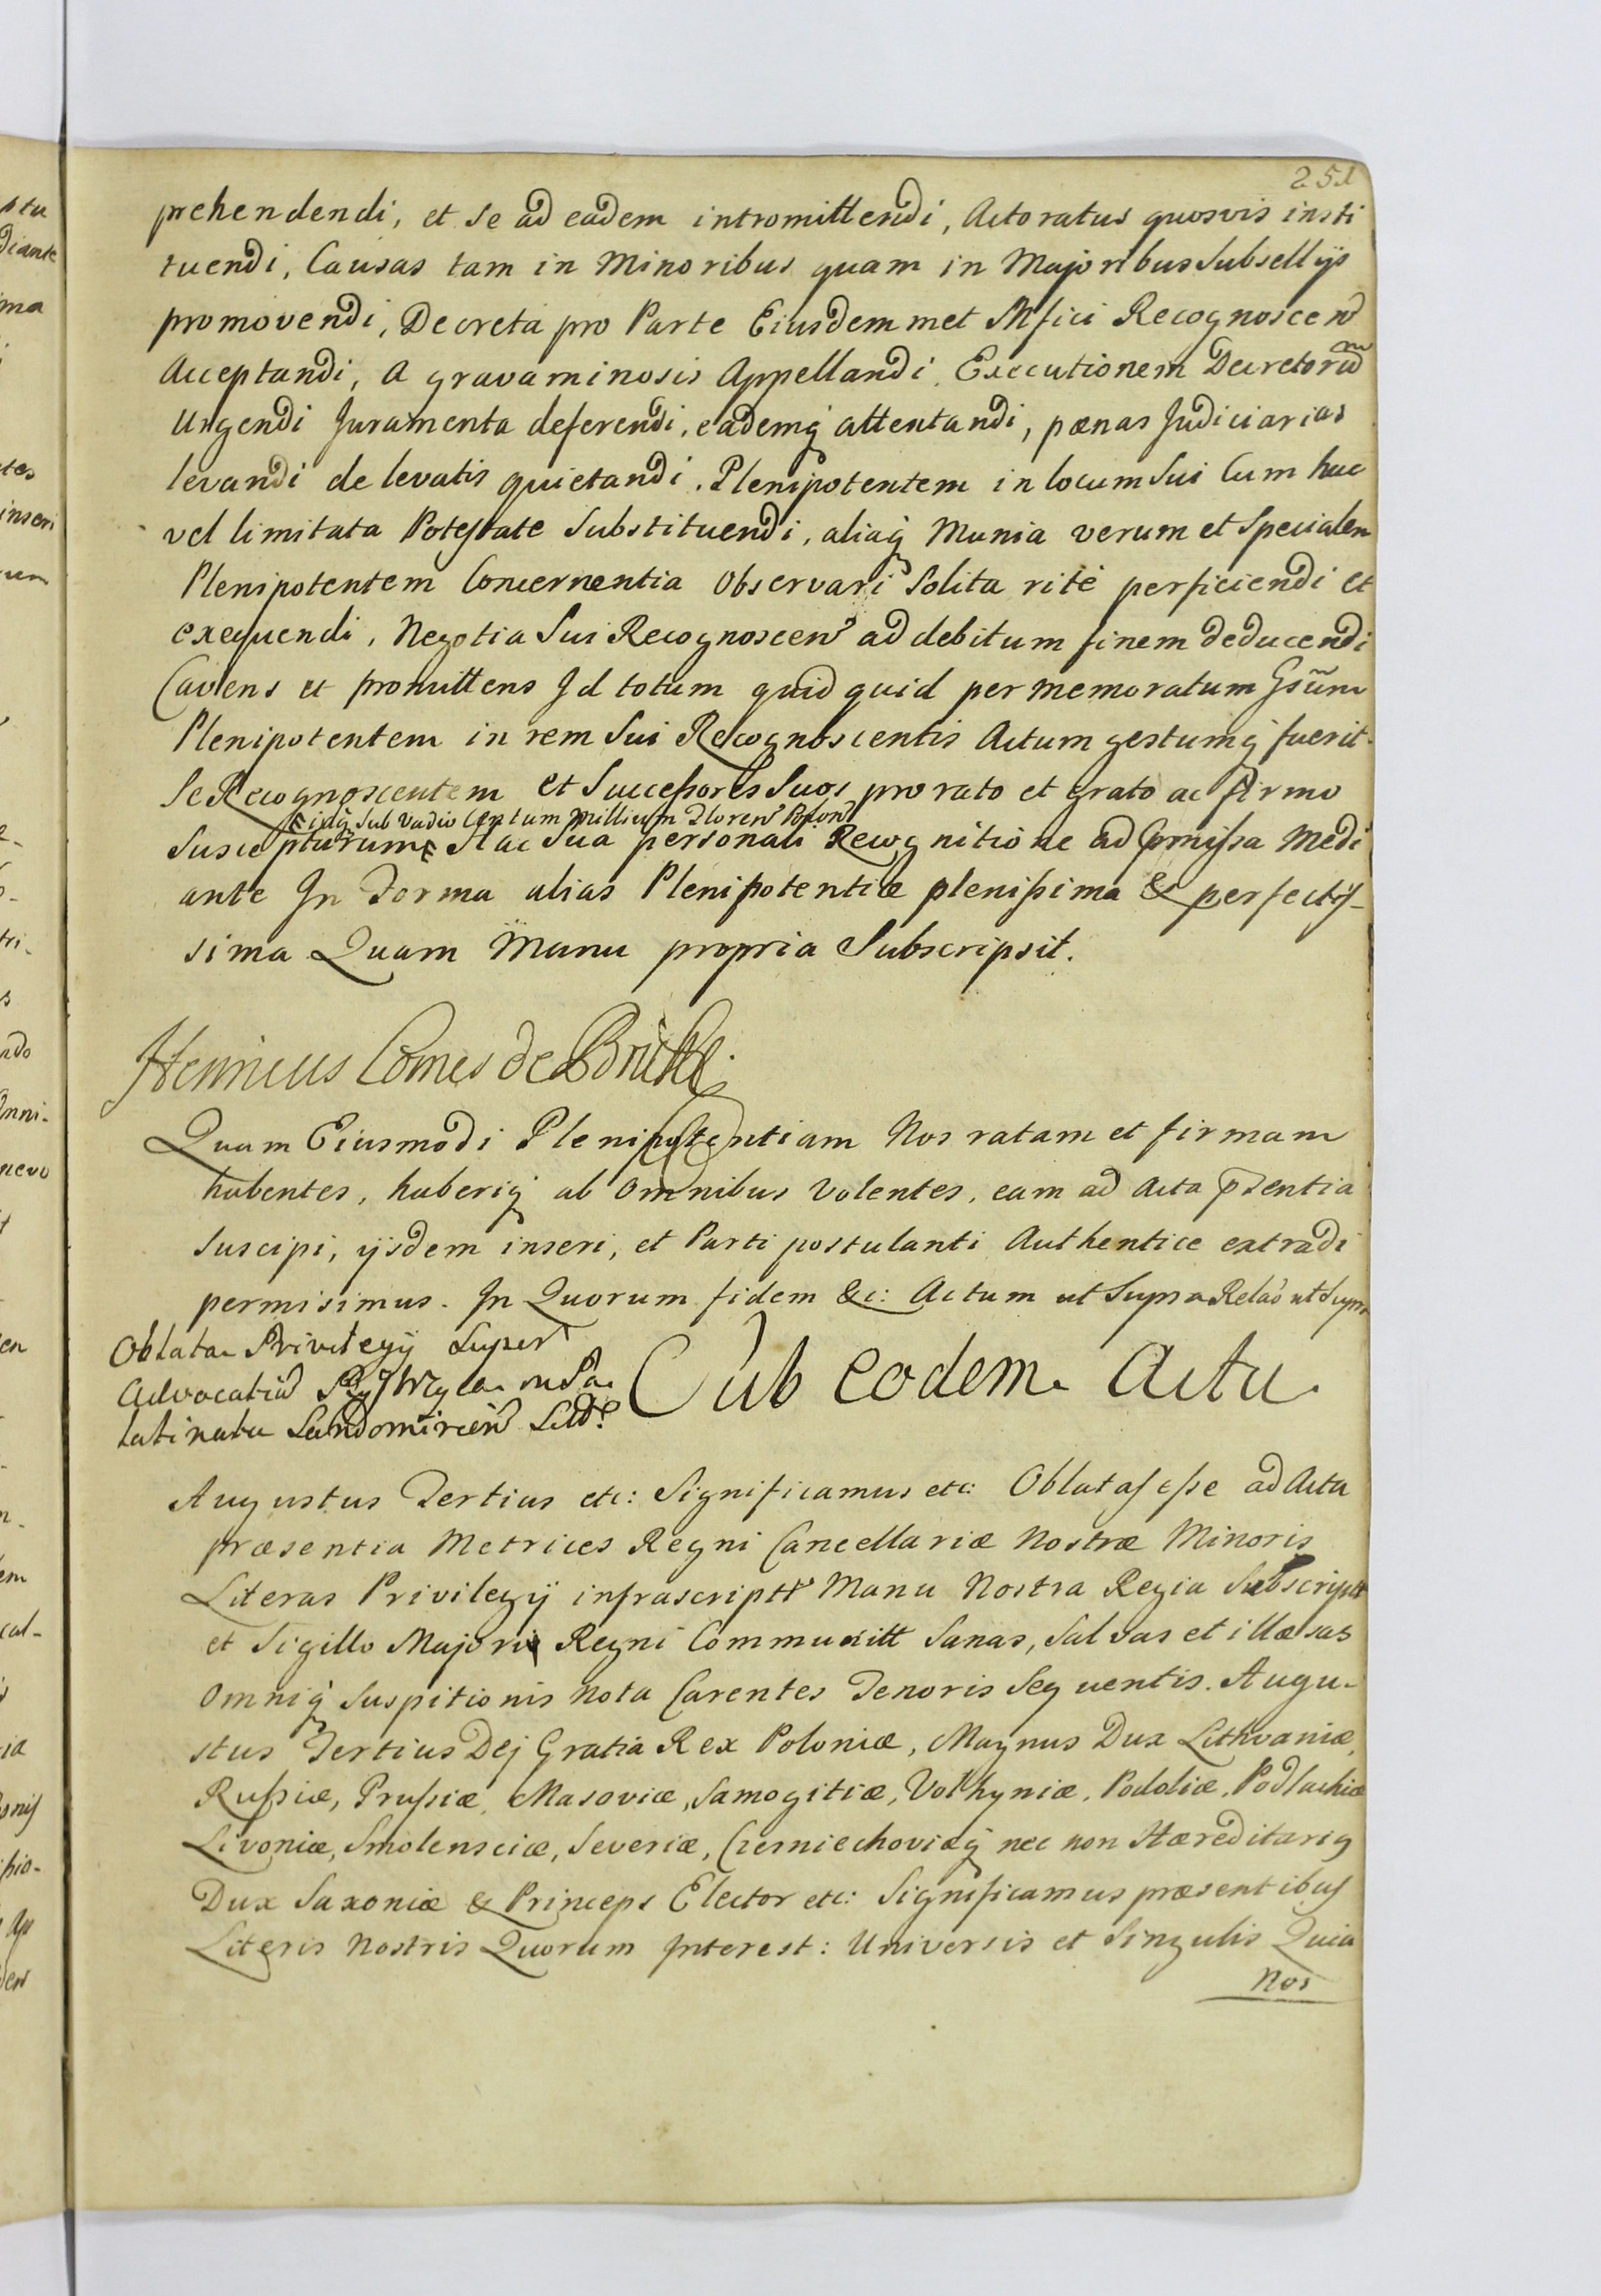 251
prehendendi, et se ad eadem intromittendi, Actoratus quosvis insti
tuendi, Causas tam in Minoribus quam in Majoribus Subsellijs
promovendi, Decreta pro Parte Eiusdemmet Mfici Recognoscen
Acceptandi, A gravaminosis Appellandi, Executionem Decretorum
Urgendi Juramenta deferendi, eademq́ attentandi, pænas Judiciarias
levandi de levatis quietandi. Plenipotentem in locum Sui Cum hac
vel limitata Potestate Substituendi, aliaq́ Munia verum et Specialem
Plenipotentem Concernentia Observari Solita ritè perficiendi et
exequendi, Negotia Sui Recognoscen ad debitum finem deducendi
Cavens et promittens Id totum quid quid per memoratum Gsũm
Plenipotentem in rem Sui Recognoscentis Actum gestumq́ fuerit
Se Recognoscentem et Successores Suos pro rato et grato ac firmo
idq́ Sub Vadio Centum Millium Floren Polon
Suscepturum Hac Sua personali Recognitione ad præmissa Medi
ante In Forma alias Plenipotentiæ plenissima & perfectis-
sima Quam Manu propria Subscripsit.
Henricus Comes de Brühl
Quam Eiusmodi Plenipotentiam Nos ratam et firmam
habentes, haberiq́ ab Omnibus Volentes, eam ad Acta p̃sentia
Suscipi, ijsdem inseri, et Parti postulanti Authentice extradi
permisimus. In Quorum fidem &c: Actum ut Supra Relao ut Supra
Oblata Privilegij Super
Advocatia in Pa
latinatu Sandomirien
Sub eodem Actu
Augustus Tertius etc: Significamus etc: Oblatas esse ad Acta
præsentia Metrices Regni Cancellariæ Nostræ Minoris
Literas Privilegij infrascriptt Manu Nostra Regia Subscriptt
et Sigillo Majori Regni Communitt Sanas, Salvas et illæsas
Omniq́ Suspitionis Nota Carentes Tenoris Sequentis. Augu-
stus Tertius Dej Gratia Rex Poloniæ, Magnus Dux Lithvaniæ,
Russiæ, Prussiæ, Masoviæ, Samogitiæ, Volhyniæ, Podoliæ, Podlachiæ
Livoniæ, Smolensciæ, Severiæ, Czerniechoviæq́ nec non Hæreditarig
Dux Saxoniæ & Princeps Elector etc: Significamus præsentibus
Literis Nostris Quorum Interest: Universis et Singulis Quia
Nos